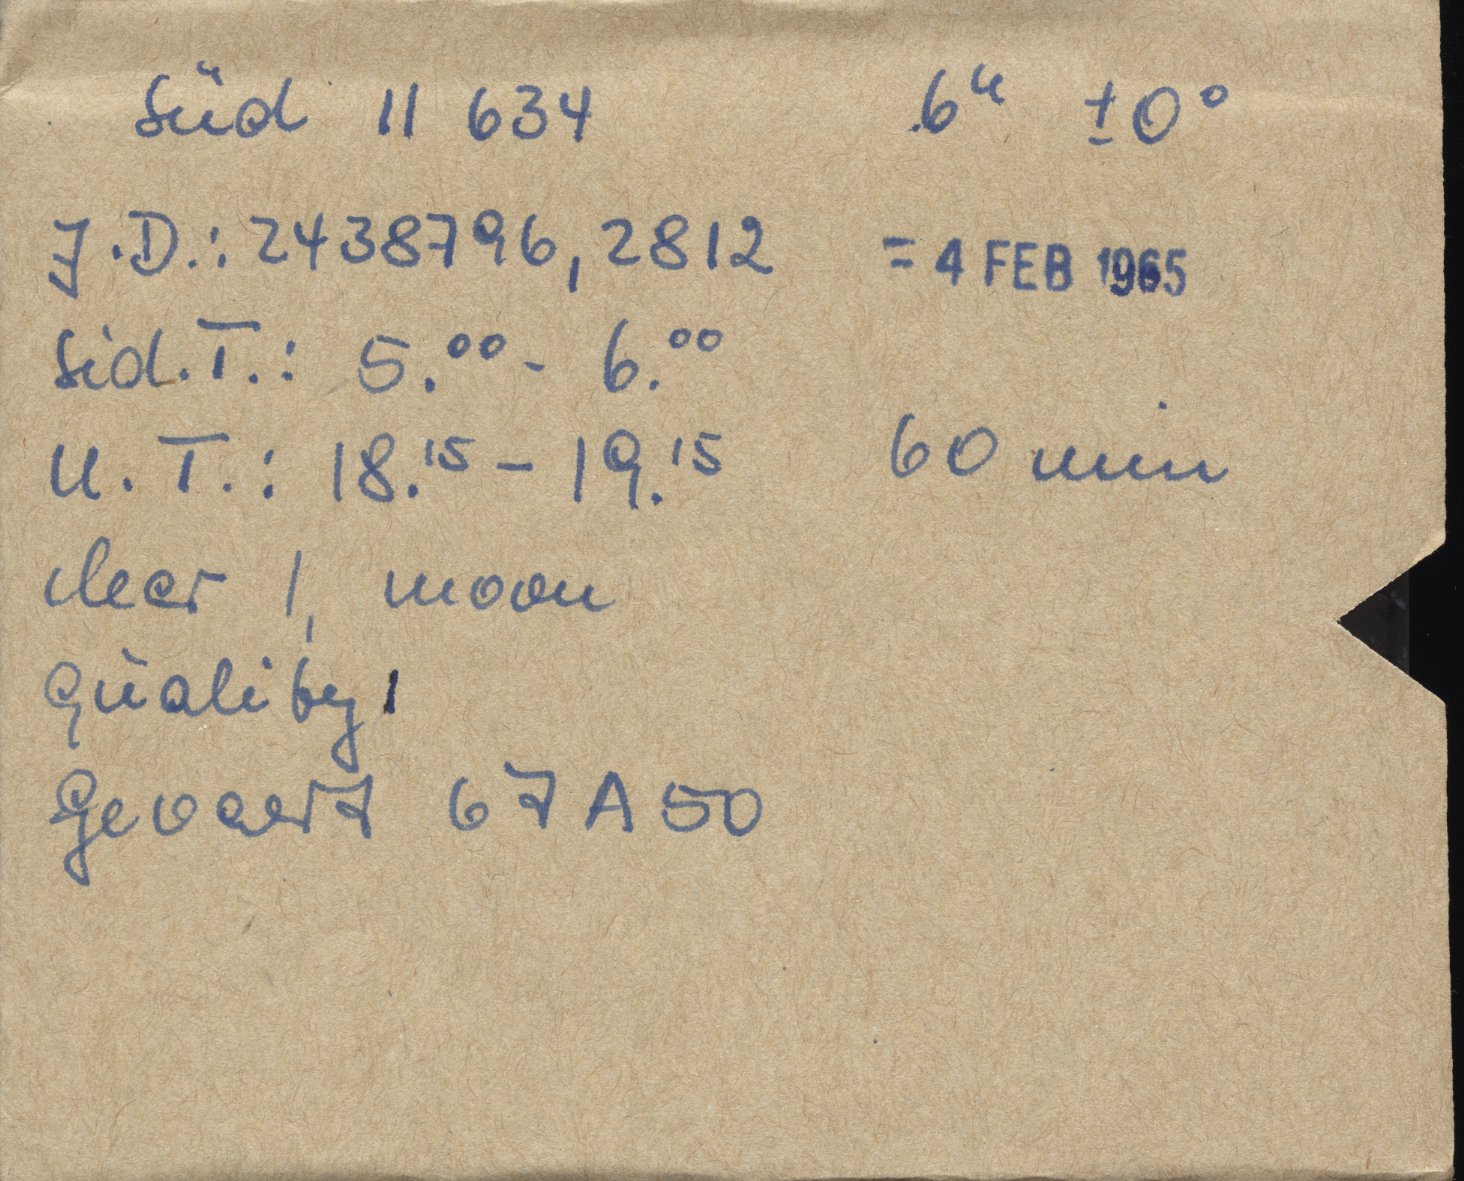 Süd 11 634 6ʰ ±0°
J.D.: 2438796,2812 = 4 FEB 1965
Sid.T.: 5.⁰⁰ - 6.⁰⁰
U.T.: 18.¹⁵ - 19.¹⁵ 60 min
clear 1, moon
Quality 1
Gevaert 67 A 50